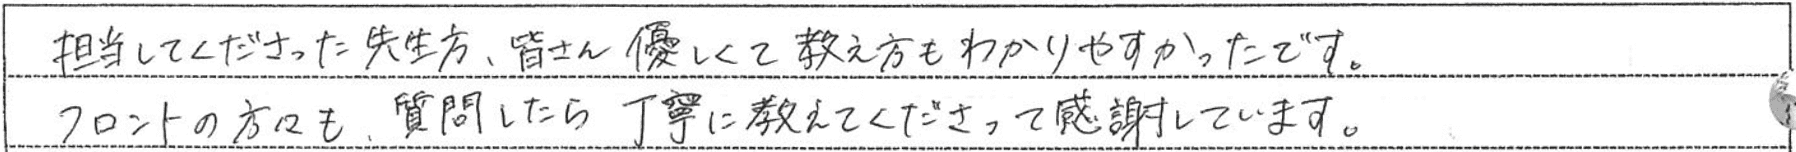 担当してくださった先生方、皆さん優しくて教え方もわかりやすかったです。
フロントの方々も、質問したら丁寧に教えてくださって感謝しています。